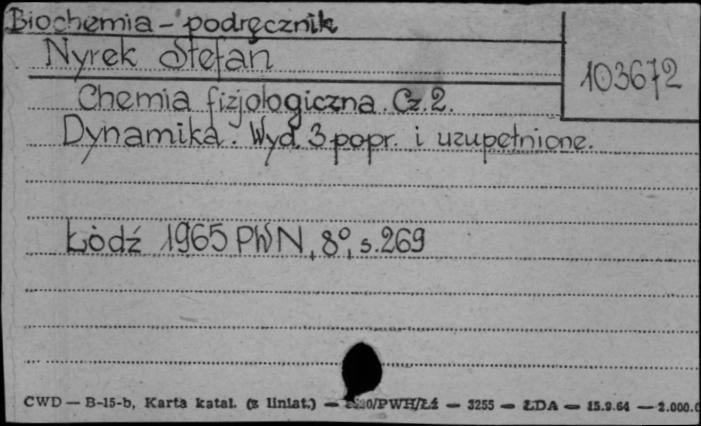 Biochemia - podręcznik
Nyrek Stefan
103672
Chemia fizjologiczna. Cz. 2.
Dynamika. Wyd. 3 popr. i uzupełnione.
Łódź 1965 PWN, 8°, s. 269
CWD — B-15-b, Karta katal. (z liniat.) — /PWH/Łź — 3255 — ŁDA — 15.9.64 — 2.000.0